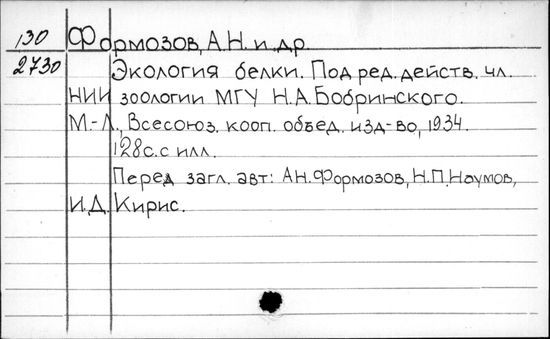 130 Формозов, А.Н. и др.
2730 Экология белки. Под ред. действ. чл.
НИИ зоологии МГУ Н.А. Бобринского.
М.-Л., Всесоюз. кооп. объед. изд-во, 1934.
128 с. с илл.
Перед загл. авт: А.Н. Формозов, Н.П. Наумов,
И.Д. Кирис.